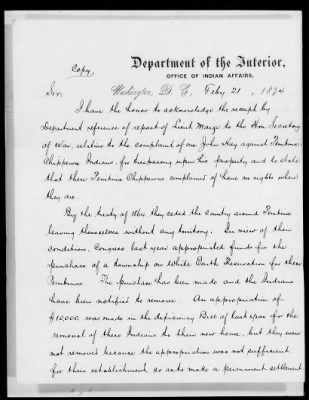 Copy,
Department of the Interior,
OFFICE OF INDIAN AFFAIRS,
Washington, D. C., Feby 21, 1874
Sir:
I have the honor to acknowledge the receipt by
Department reference of report of Lieut to the Hon Secretary
of War, relative to the complaint of one John Hay against Pembina
Chippewa Indians, for trespassing upon his property and to state
that these Pembina Chippewas complained of have no rights where
they are.
By the treaty of they ceded the country around Pembina
leaving themselves without any territory. In view of their
condition, Congress last year appropriated funds for the
purchase of a township on White Earth Reservation for these
Pembinas. The purchase has been made and the Indians
have been notified to remove. An appropriation of
$10,000. was made in the deficiency Bill of last year for the
removal of these Indians to their new home, but they were
not removed because the appropriation was not sufficient
for their establishment so as to make a permanent settlement